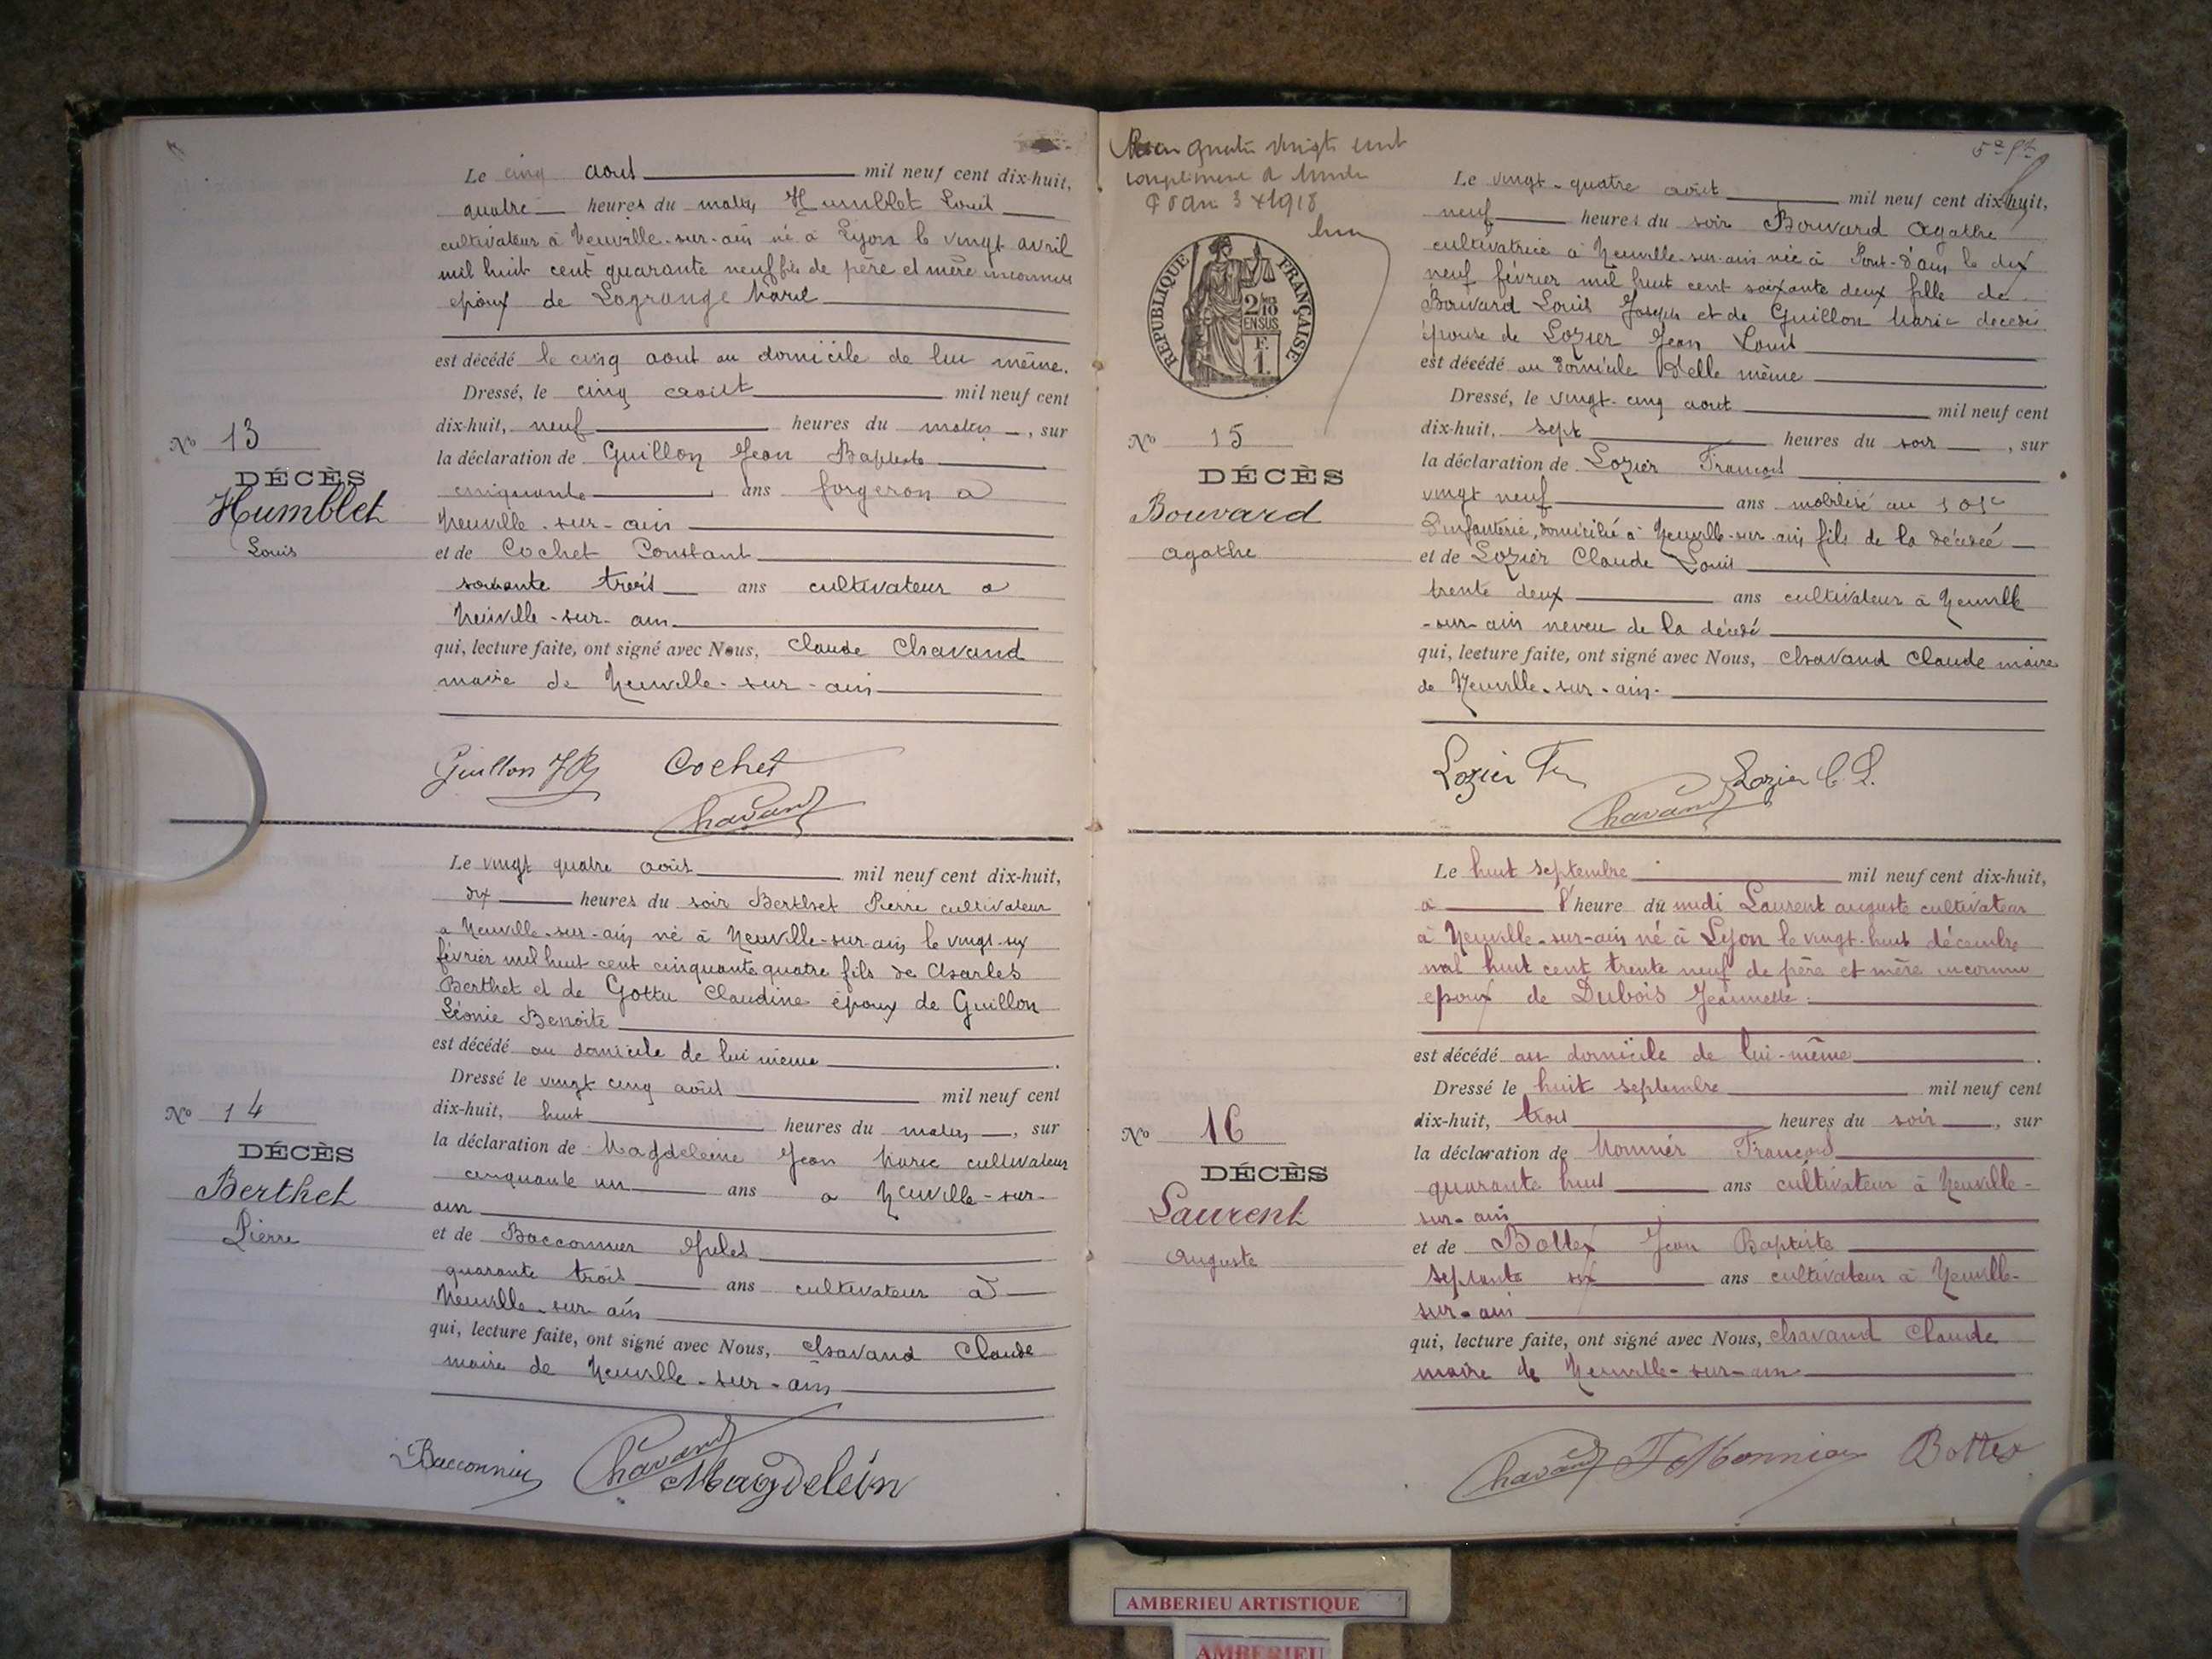 Le cinq aout mil neuf cent dix-huit,
quatre heures du matin Humblet Louis
cultivateur à Neuville-sur-ain né à Lyon le vingt avril
mil huit cent quarante neuf fils de père et mère inconnus
époux de Lagrange Marie
est décédé le cinq aout au domicile de lui même.
Dressé, le cinq aout mil neuf cent
dix-huit, neuf heures du matin, sur
la déclaration de Guillon Jean Baptiste
cinquante ans forgeron a
Neuville-sur-ain
et de Cochet Constant
soixante trois ans cultivateur a
Neuville-sur-ain
qui, lecture faite, ont signé avec Nous, Claude Chavand
maire de Neuville-sur-ain
No 13
DÉCÈS
Humblet
Louis
Guillon JB Cochet
Chavand
Le vingt quatre août mil neuf cent dix-huit,
dix heures du soir Berthet Pierre cultivateur
a Neuville-sur-ain né à Neuville-sur-ain le vingt-six
février mil huit cent cinquante quatre fils de Charles
Berthet et de Gottu Claudine époux de Guillon
Léonie Benoite
est décédé au domicile de lui même.
Dressé le vingt cinq août mil neuf cent
dix-huit, huit heures du matin, sur
la déclaration de Magdeleine Jean Marie cultivateur
cinquante un ans a Neuville-sur-
ain
et de Bacconnier Jules
quarante trois ans cultivateur à
Neuville-sur-ain
qui, lecture faite, ont signé avec Nous, Chavand Claude
maire de Neuville-sur-ain
No 14
DÉCÈS
Berthet
Pierre
Bacconnier Chavand
Magdelein
quatre vingt
complément de timbre
1918
RÉPUBLIQUE FRANÇAISE
2/10
EN SUS
F.
1.
Le vingt-quatre août mil neuf cent dix-huit,
neuf heures du soir Bouvard Agathe
cultivatrice à Neuville-sur-ain née à Pont-d'ain le dix
neuf février mil huit cent soixante deux fille de
Bouvard Louis Joseph et de Guillon Marie décédés
épouse de Lozier Jean Louis
est décédé au domicile d'elle même.
Dressé, le vingt-cinq aout mil neuf cent
dix-huit, sept heures du soir, sur
la déclaration de Lozier François
vingt neuf ans mobilisé au
d'infanterie, domicilié à Neuville-sur-ain, fils de la décédée
et de Lozier Claude Louis
trente deux ans cultivateur à Neuville
-sur-ain neveu de la décédé
qui, lecture faite, ont signé avec Nous, Chavand Claude maire
de Neuville-sur-ain.
No 15
DÉCÈS
Bouvard
agathe
Lozier Fr Lozier C. L.
Chavand
Le huit septembre mil neuf cent dix-huit,
à heure du midi Laurent auguste cultivateur
à Neuville-sur-ain né à Lyon le vingt-huit décembre
mil huit cent trente neuf de père et mère inconnu
époux de Dubois Jeannette.
est décédé au domicile de lui-même.
Dressé le huit septembre mil neuf cent
dix-huit, trois heures du soir, sur
la déclaration de Monnier François
quarante huit ans cultivateur à Neuville-
sur-ain
et de Bottex Jean Baptiste
septante six ans cultivateur à Neuville-
sur-ain
qui, lecture faite, ont signé avec Nous, Chavand Claude
maire de Neuville-sur-ain.
No 16
DÉCÈS
Laurent
Auguste
Chavand F Monnier Bottex
AMBERIEU ARTISTIQUE
AMBERIEU